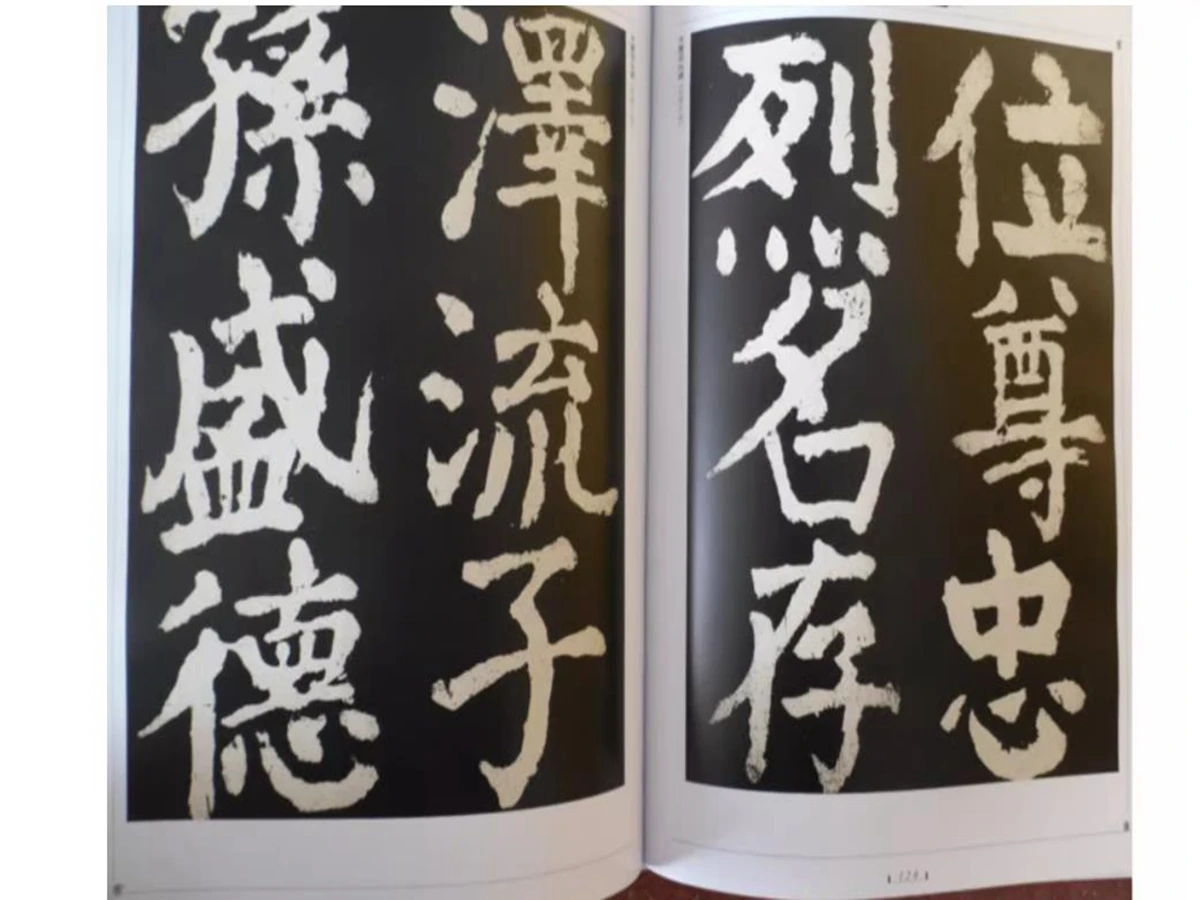 位尊忠
烈名存
澤流子
孫盛德
124